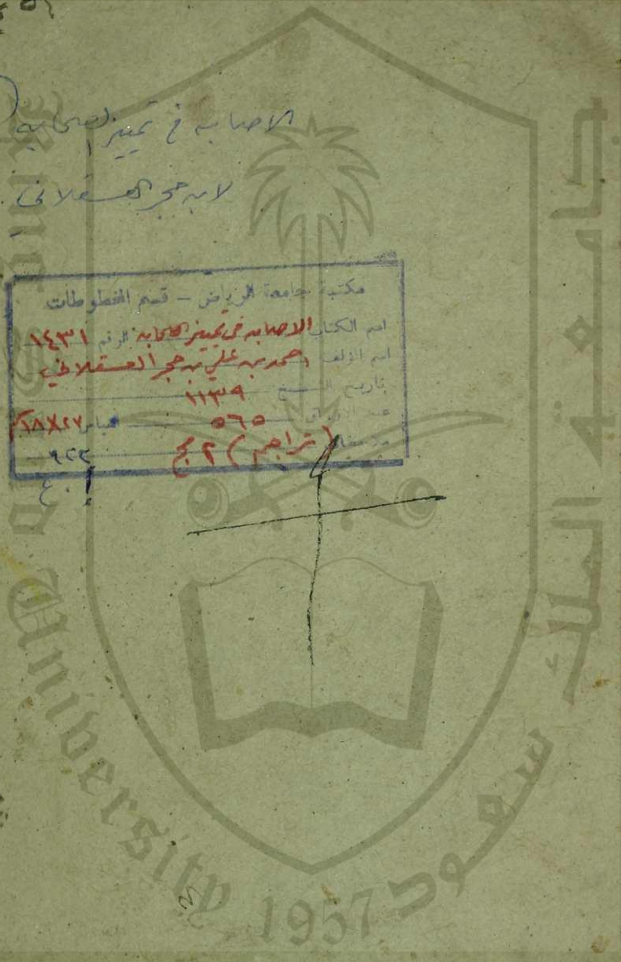 الاصابه في تمييز الصحابه
لابن حجر العسقلاني
مكتبة جامعة الرياض – قسم المخطوطات
اسم الكتاب الاصابه في تمييز الصحابه الرقم ١٤٣١
اسم المؤلف احمد بن علي بن حجر العسقلاني
تاريخ النسخ ١١٣٩
عدد الأوراق ٥٦٥ قياس ٢٧×١٨
ملاحظات (تراجم) ٢ مج ٩٢٢
جامعة الملك سعود
University
1957